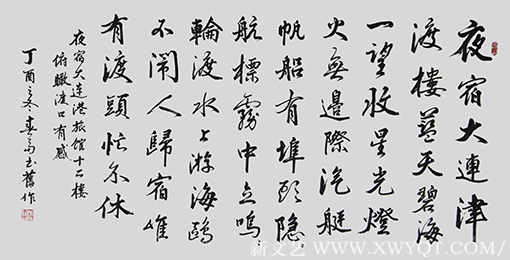 夜宿大連津
渡樓藍天碧海
一望收星光燈
火無邊際汽艇
帆船有埠頭隱
航標霧中立鳴
輪渡水上游海鷗
不鬧人歸宿惟
有渡頭忙不休
夜宿大連港旅館十二樓
俯瞰渡口有感
丁酉之冬書舊作
新文艺 WWW.XWYQT.COM